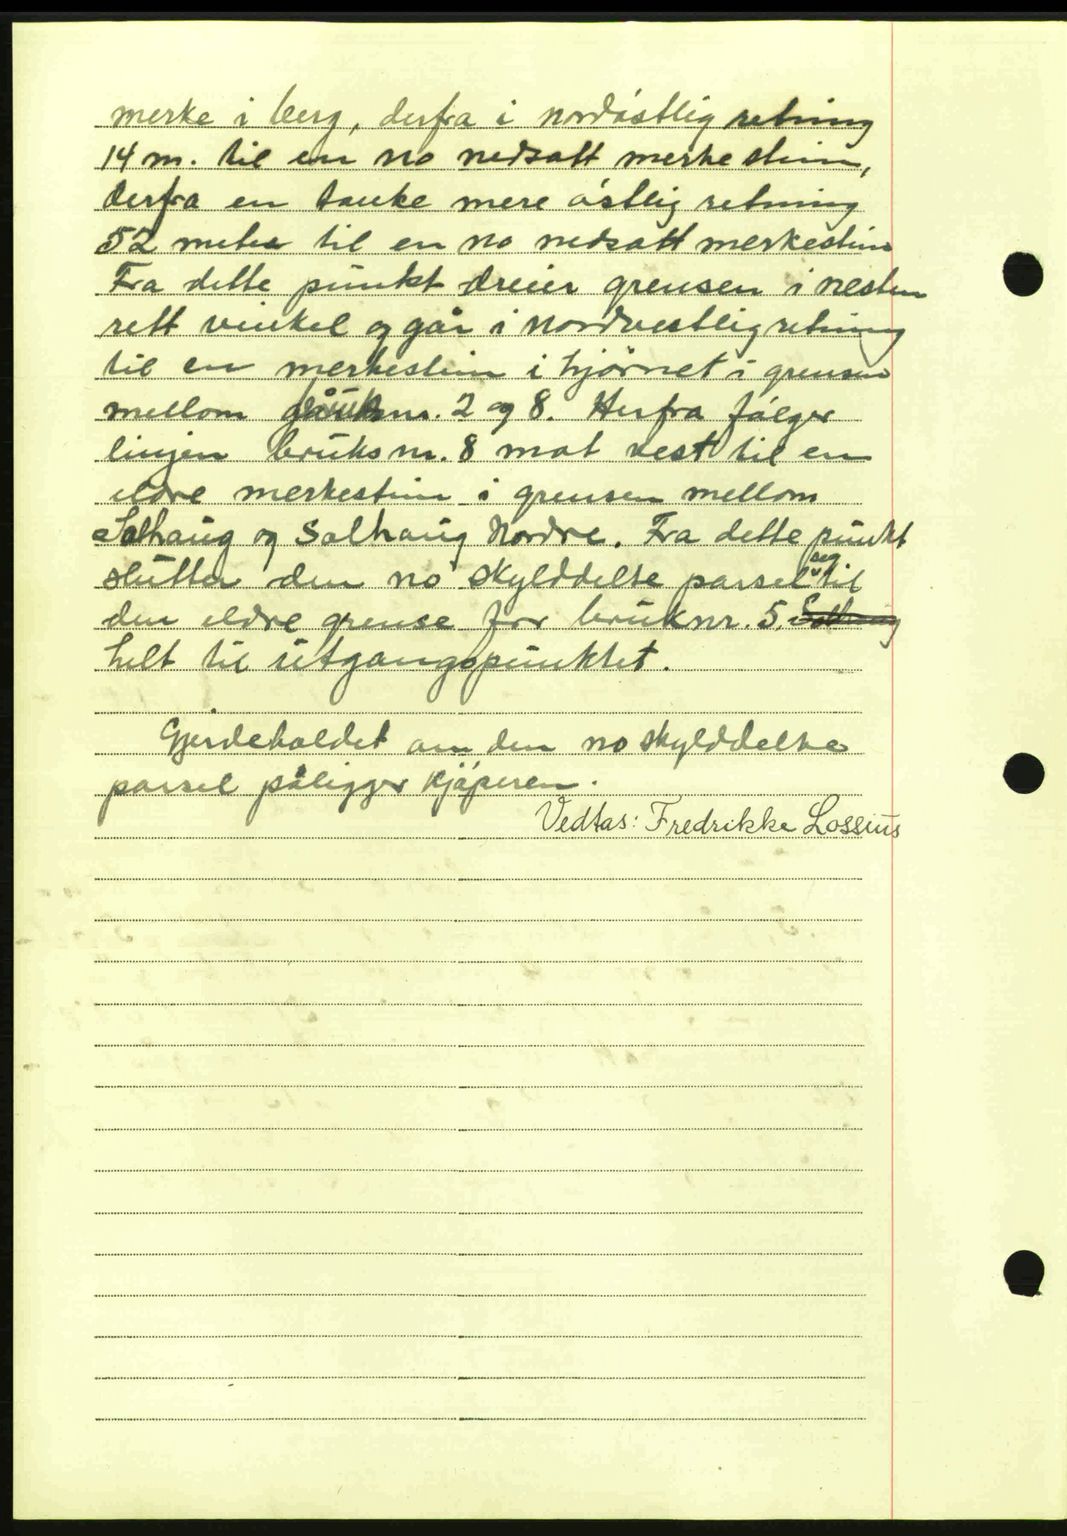 merke i berg, derfra i nordöstlig retning
14 m. til en no nedsatt merkestein,
derfra en tanke mere östlig retning
52 meter til en no nedsatt merkestein
Fra dette punkt dreier grensen i nesten
rett vinkel og går i nordvestlig retning
til en merkestein i hjörnet i grensen
mellom bruksnr. 2 og 8. Herfra fölger
linjen bruksnr. 8 mot vest til en
eldre merkestein i grensen mellom
Solhaug og Solhaug Nordre. Fra dette punkt
slutter den no skylddelte parsel seg til
den eldre grense for bruknr. 5. Solhaug
helt til utgangspunktet.
Gjerdeholdet om den no skylddelte
parsel påligger kjöperen.
Vedtas: Fredrikke Lossius